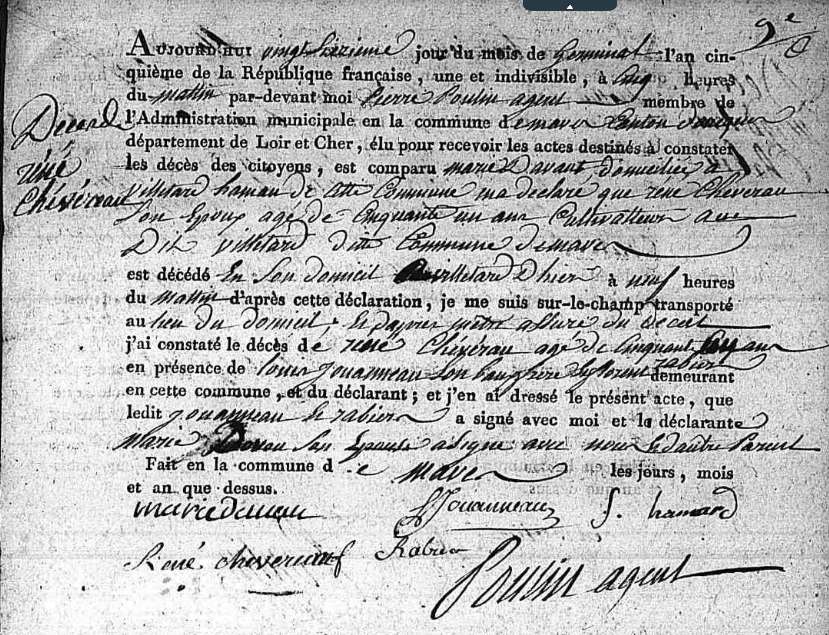 9e
AUJOURD'HUI vingt sixieme jour du mois de Germinal l'an cin-
quième de la République française, une et indivisible, à cinq heures
du mattin par-devant moi Pierre Poulin agent membre de
l'Administration municipale en la commune de maves canton
département de Loir et Cher, élu pour recevoir les actes destinés à constater
les décès des citoyens, est comparu marie Davau domiciliée a
villetard hamau de cete Commune ma declaré que rené Cheverau
Son Epoux agé de Cinquante un ans Cultivatteur au
Dit villetard dite Commune de maves
est décédé En Son domicil villetard D'hier à neuf heures
du mattin d'après cette déclaration, je me suis sur-le-champ transporté
au lieu du domicil, du deces
j'ai constaté le décès de rené Chévérau agé de Cinquante ans
en présence de louis Jouanneau Son beaufrere rabier demeurant
en cette commune, et du déclarant; et j'en ai dressé le présent acte, que
ledit jouanneau et rabier a signé avec moi et la déclarante
Marie Davau Son Epouse a signé avec nous et dautre Parent
Fait en la commune de maves les jours, mois
et an que dessus.
Decand
réné
Chévéreau
marie davau L Jouanneau f. hamard
René chevereau Rabier
Poulin agent